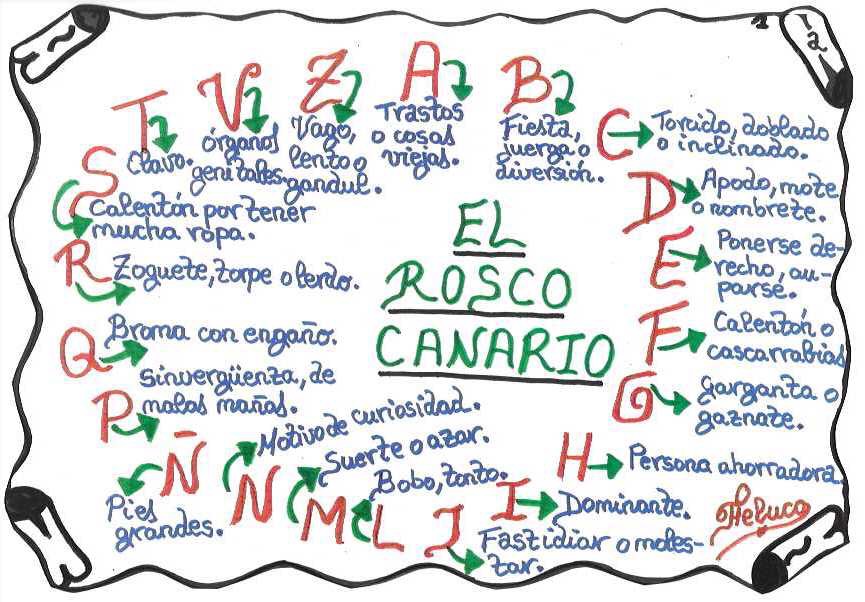 1
2
EL
ROSCO
CANARIO
A
Trastos
o cosas
viejas.
B
Fiesta,
juerga o
diversión.
C
Torcido, doblado
o inclinado.
D
Apodo, mote
o nombrete.
E
Ponerse de-
recho, au-
parse.
F
Calentón o
cascarrabias
G
Garganta o
gaznate.
H
Persona ahorradora.
I
Dominante.
J
Fastidiar o moles-
tar.
L
Bobo, tonto.
M
Suerte o azar.
N
Motivo de curiosidad.
Ñ
Pies
grandes.
P
Sinvergüenza, de
malas mañas.
Q
Broma con engaño.
R
Zoquete, torpe o lerdo.
S
Calentón por tener
mucha ropa.
T
Clavo.
V
Órganos
genitales.
Z
Vago,
lento o
gandul.
Heluca